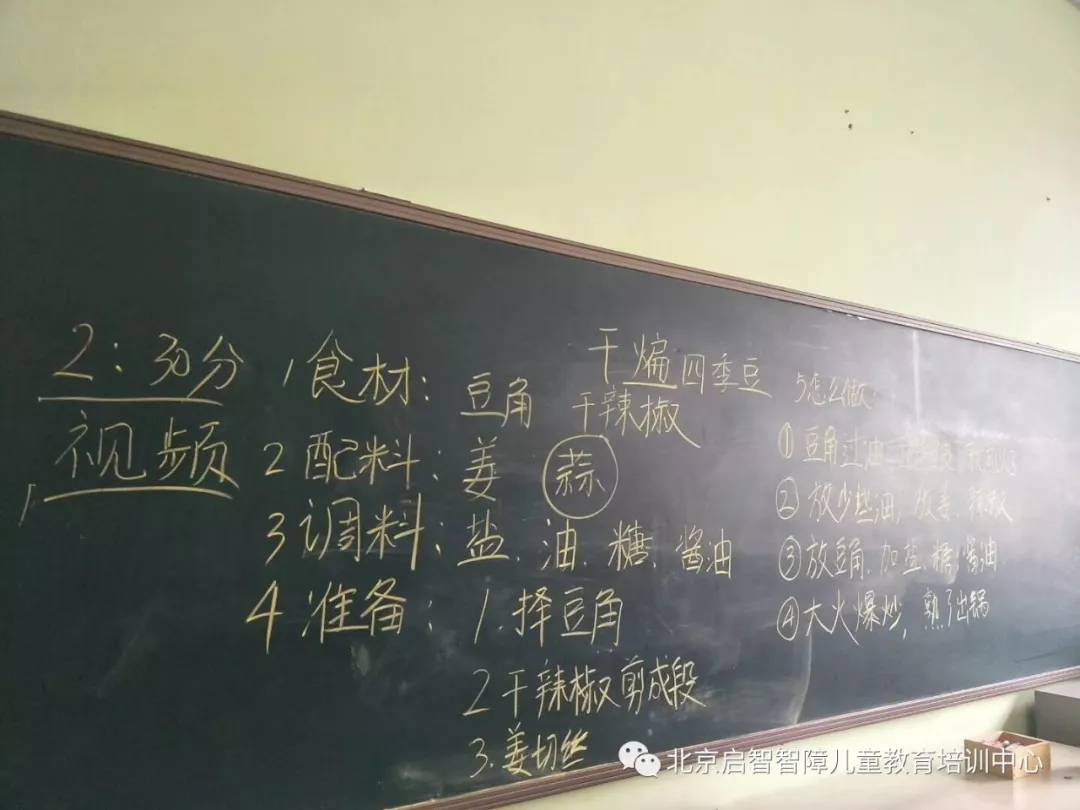 干煸四季豆
2:30分
视频
1食材：豆角 干辣椒
2配料：姜 蒜
3调料：盐、油、糖、酱油
4准备：1.择豆角
2干辣椒剪成段
3.姜切丝
5怎么做
①豆角过油
②放少些油，放姜、辣椒
③放豆角、加盐、糖、酱油
④大火爆炒，熟了出锅
北京启智智障儿童教育培训中心